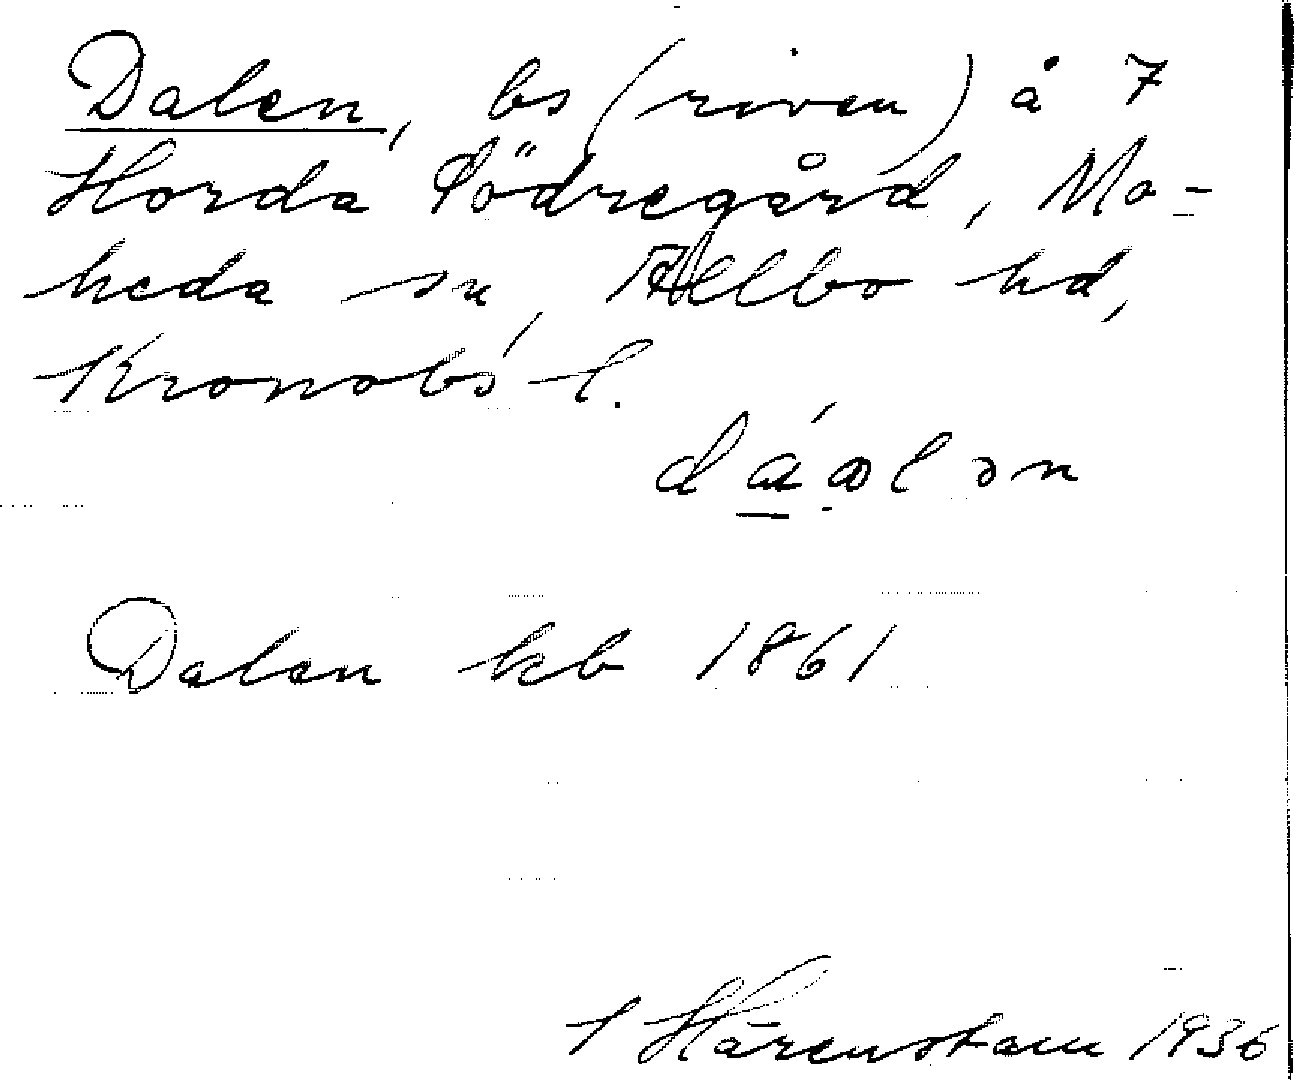 Dalen, bs (riven) å 7
Horda Södregård, Mo-
heda sn, Allbo hd,
Kronobs l.
dáalən
Dalen kb 1861
1 Härenstam 1936